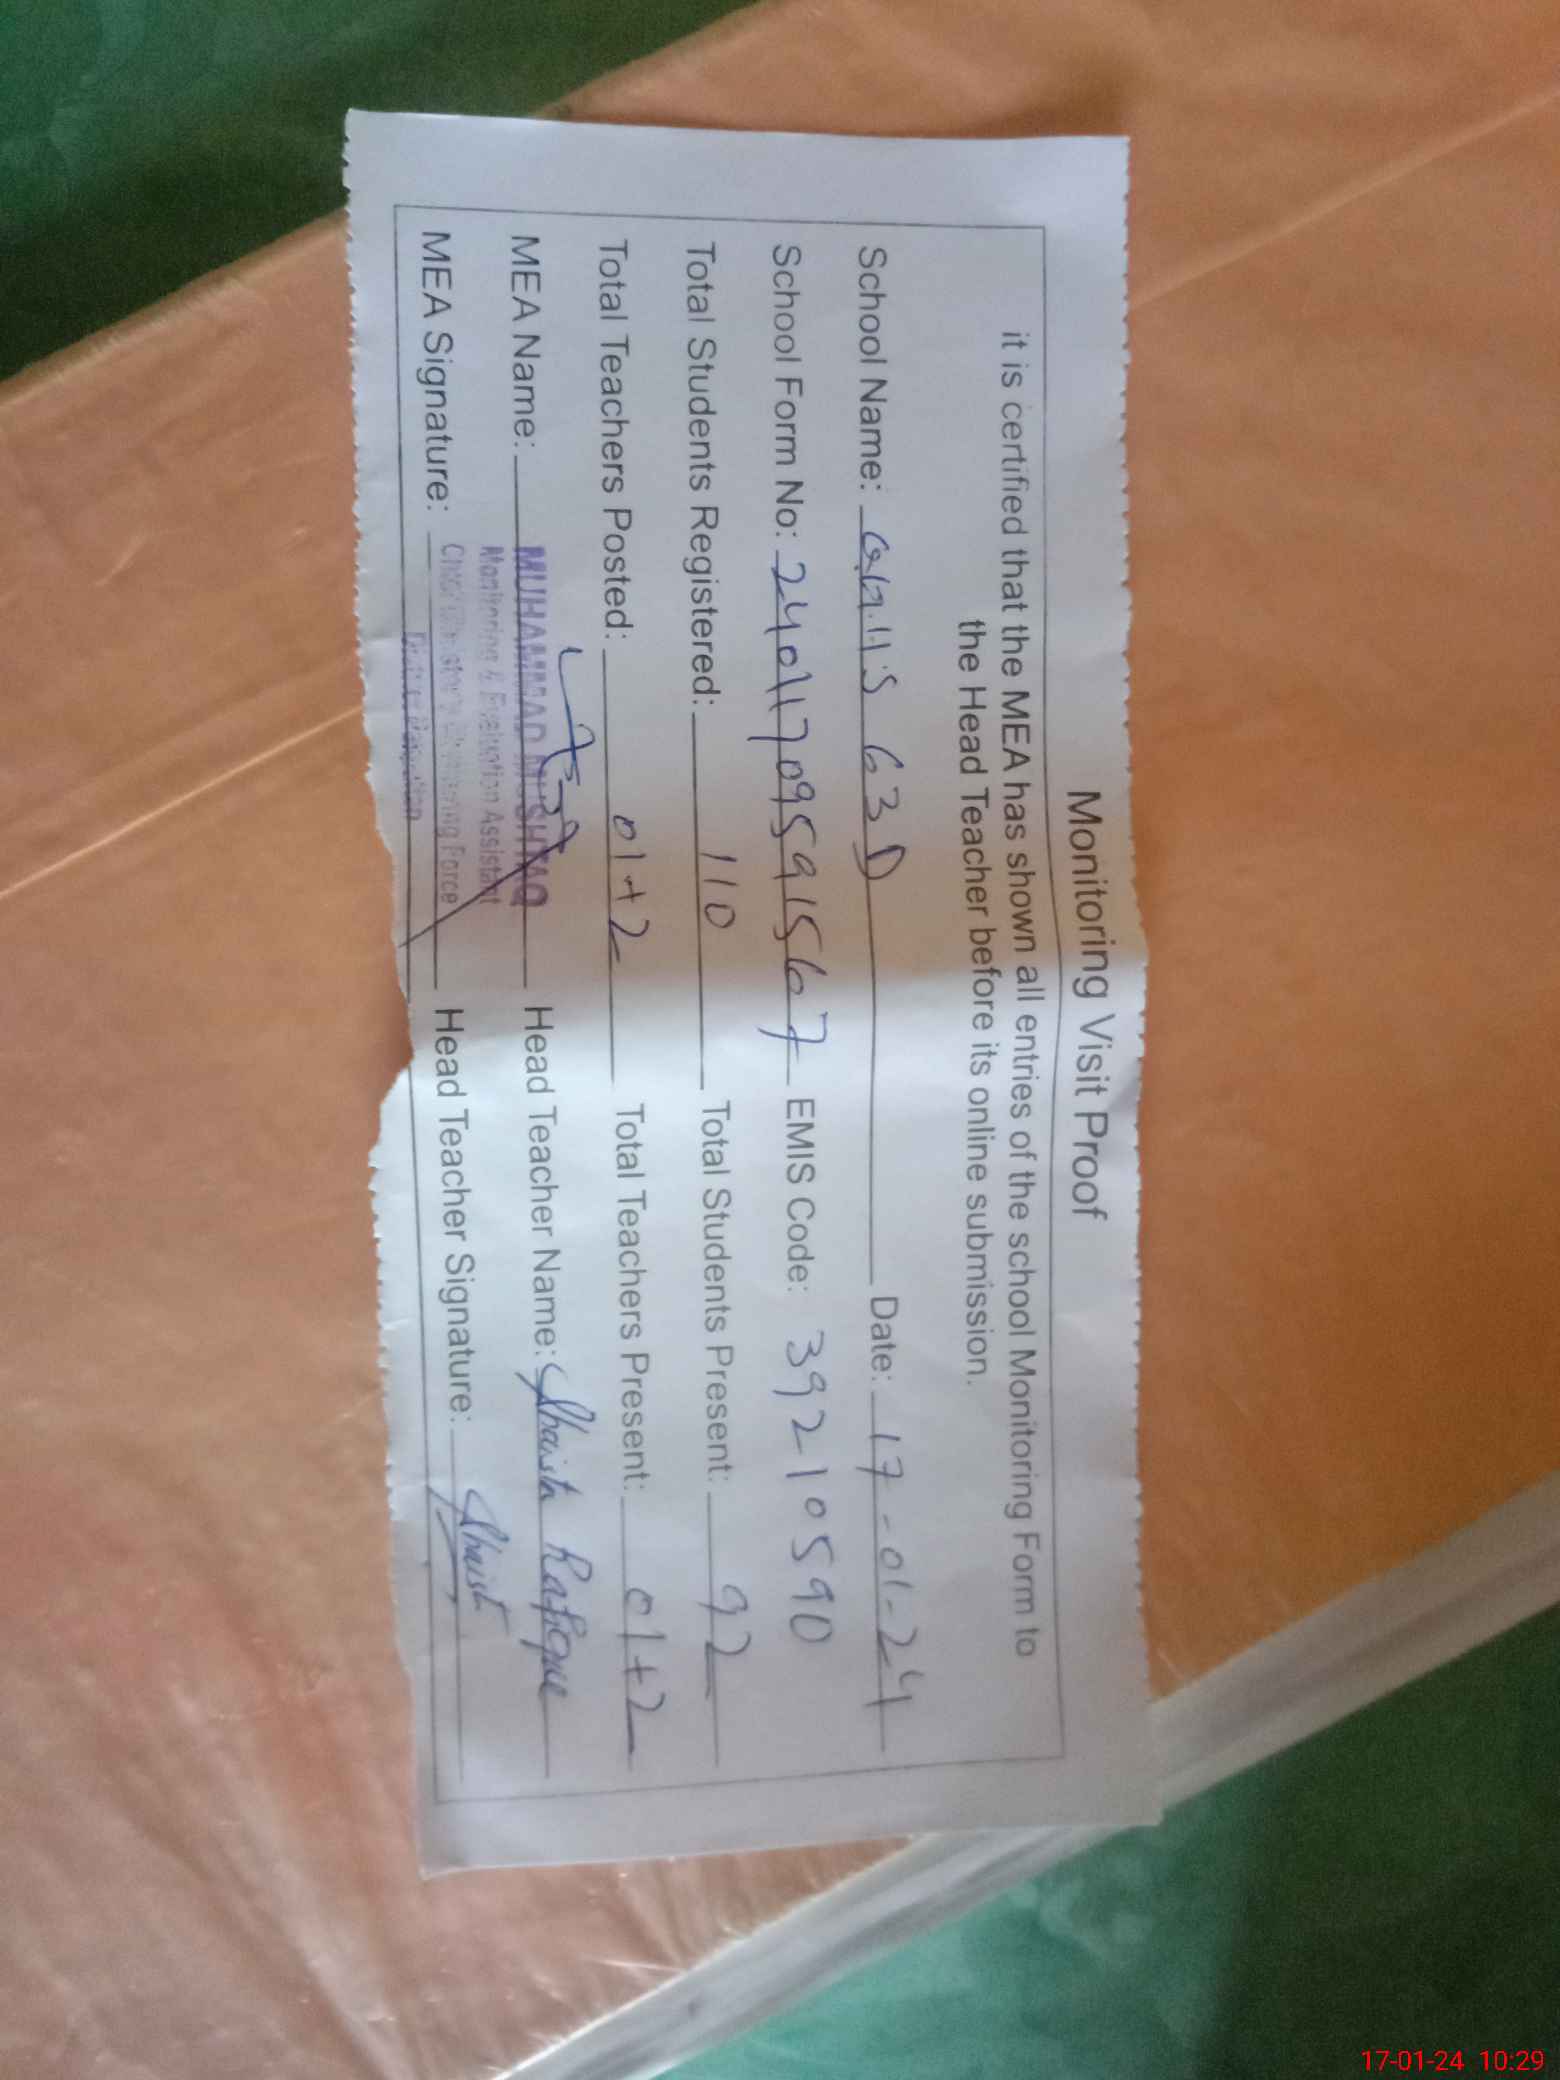 Monitoring Visit Proof
it is certified that the MEA has shown all entries of the school Monitoring Form to
the Head Teacher before its online submission.
School Name: G.G.H.S 63 D Date: 17-01-24
School Form No: 24011709591567 EMIS Code: 39210590
Total Students Registered: 110 Total Students Present: 92
Total Teachers Posted: 01+2 Total Teachers Present: 01+2
MEA Name: MUHAMMAD MUSHTAQ Head Teacher Name: Shaista Rafique
Monitoring & Evaluation Assistant
MEA Signature: Head Teacher Signature: Shaist
Chief Monitoring Force
17-01-24 10:29